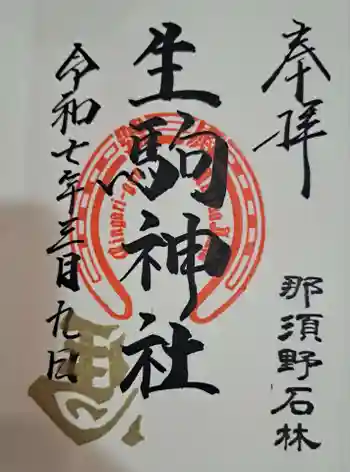 奉拝
那須野石林
生駒神社
令和七年三月九日